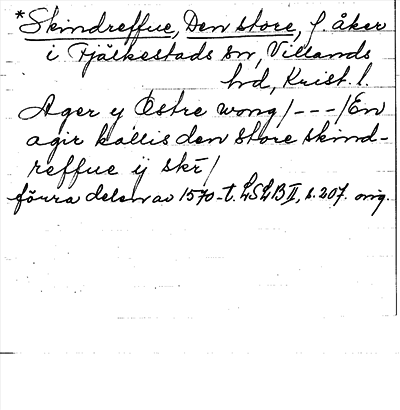 *Skindreffue, Den store, f. åker
i Fjälkestads sn, Villands
hd, Krist. l.
Ager y Østre wong/---/En
agir kallis den store skind-
reffue ij skr̄/
förra delen av 1570-t. LSLB II, s. 207. orig.